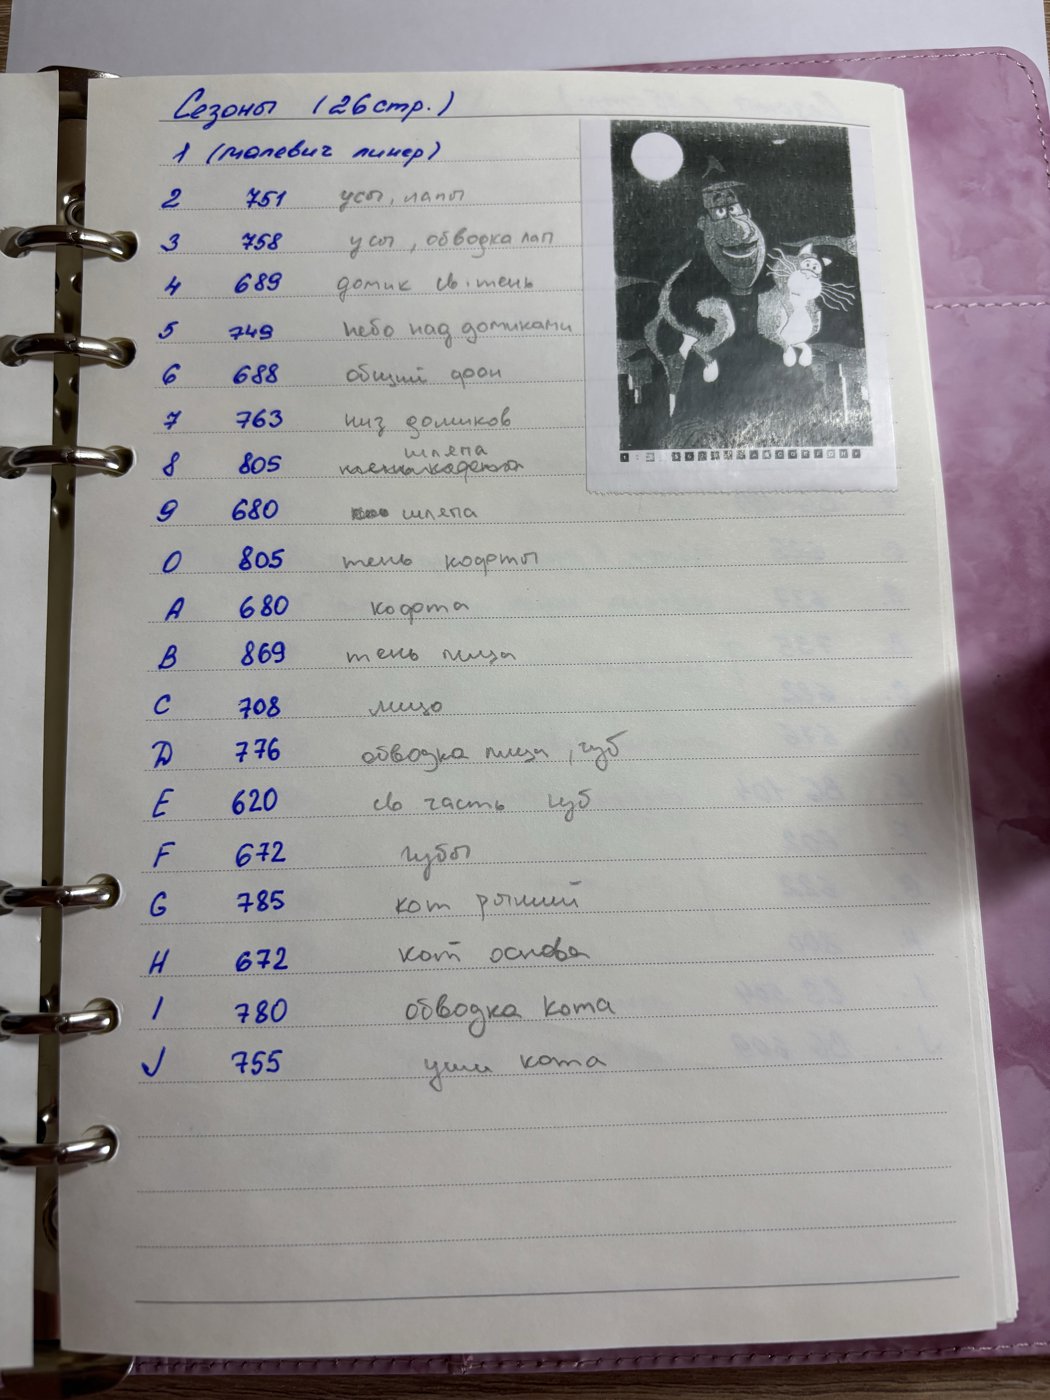 Сезоны (26стр.)
1 (малевич линер)
2 751 усы, лапы
3 758 усы, обводка лап
4 689 домик св. тень
5 749 небо над домиками
6 688 общий фон
7 763 низ домиков
8 805 шляпа
9 680 шляпа
0 805 тень кофты
A 680 кофта
B 869 тень лица
C 708 лицо
D 776 обводка лица, губ
E 620 св часть губ
F 672 губы
G 785 кот рыжий
H 672 кот основа
I 780 обводка кота
J 755 уши кота